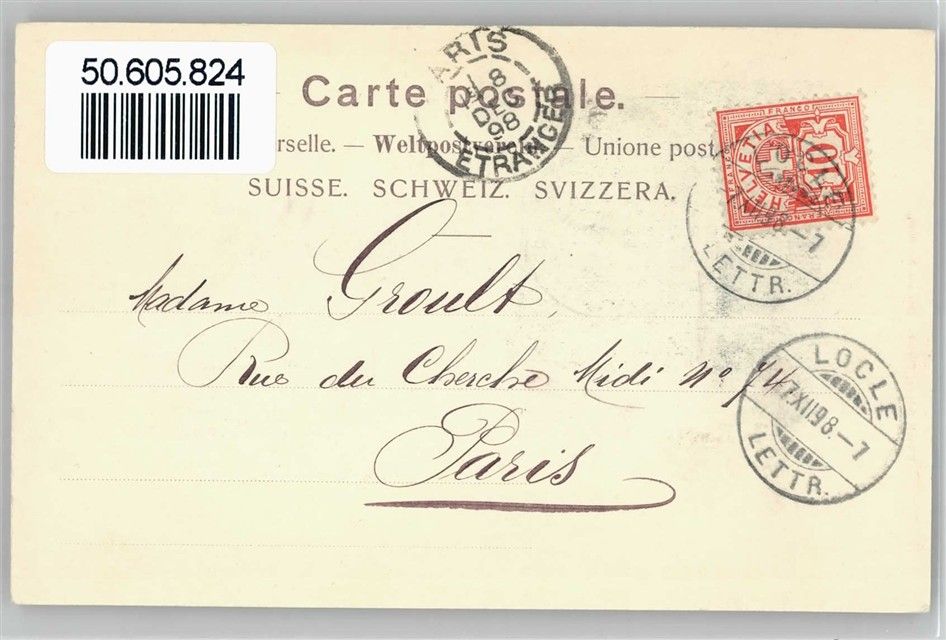 50.605.824
Carte postale.
Weltpostverein — Unione post
SUISSE. SCHWEIZ. SVIZZERA.
PARIS
8
DEC
98
ETRANGER
FRANCO
HELVETIA
10
LOCLE
98.–7
LETTR.
Madame Groult
Rue du Cherche Midi No 74
Paris
LOCLE
7.XII.98.–7
LETTR.